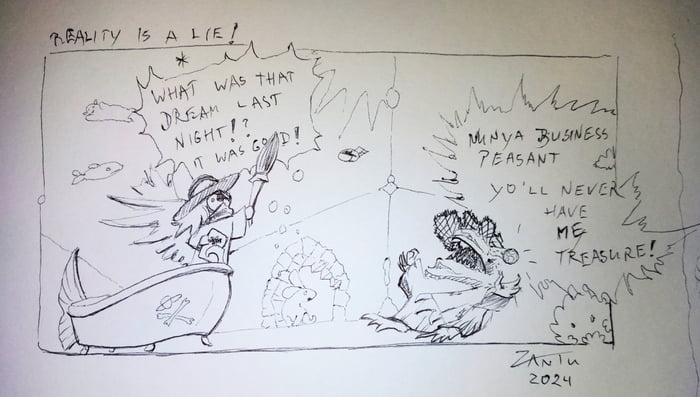 REALITY IS A LIE!
*
WHAT WAS THAT
DREAM LAST
NIGHT!?
IT WAS GOOD!
NUNYA BUSINESS
PEASANT
YO'LL NEVER
HAVE
ME
TREASURE!
ZANTU
2024